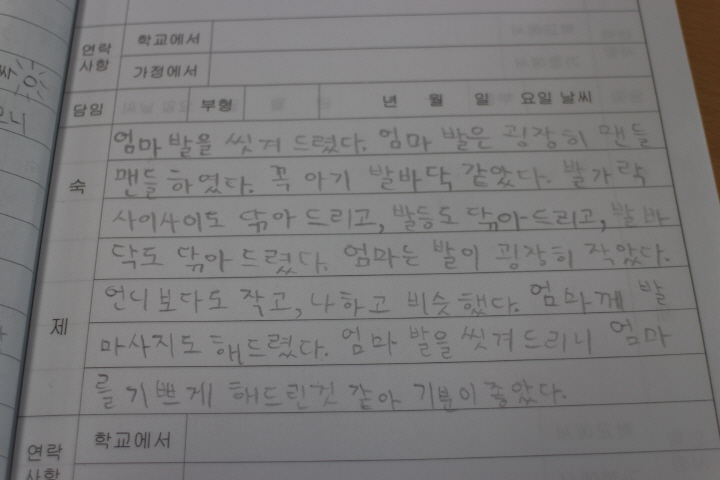 싸 ㅇ
으니
연락 사항 학교에서
가정에서
담임 부형 년 월 일 요일 날씨
숙제
엄마 발을 씻겨 드렸다. 엄마 발은 굉장히 맨들
맨들하였다. 꼭 아기 발바닥 같았다. 발가락
사이사이도 닦아 드리고, 발등도 닦아드리고, 발바
닥도 닦아 드렸다. 엄마는 발이 굉장히 작았다.
언니보다도 작고, 나하고 비슷했다. 엄마께 발
마사지도 해드렸다. 엄마 발을 씻겨 드리니 엄마
를 기쁘게 해드린것 같아 기분이 좋았다.
연락 사항 학교에서